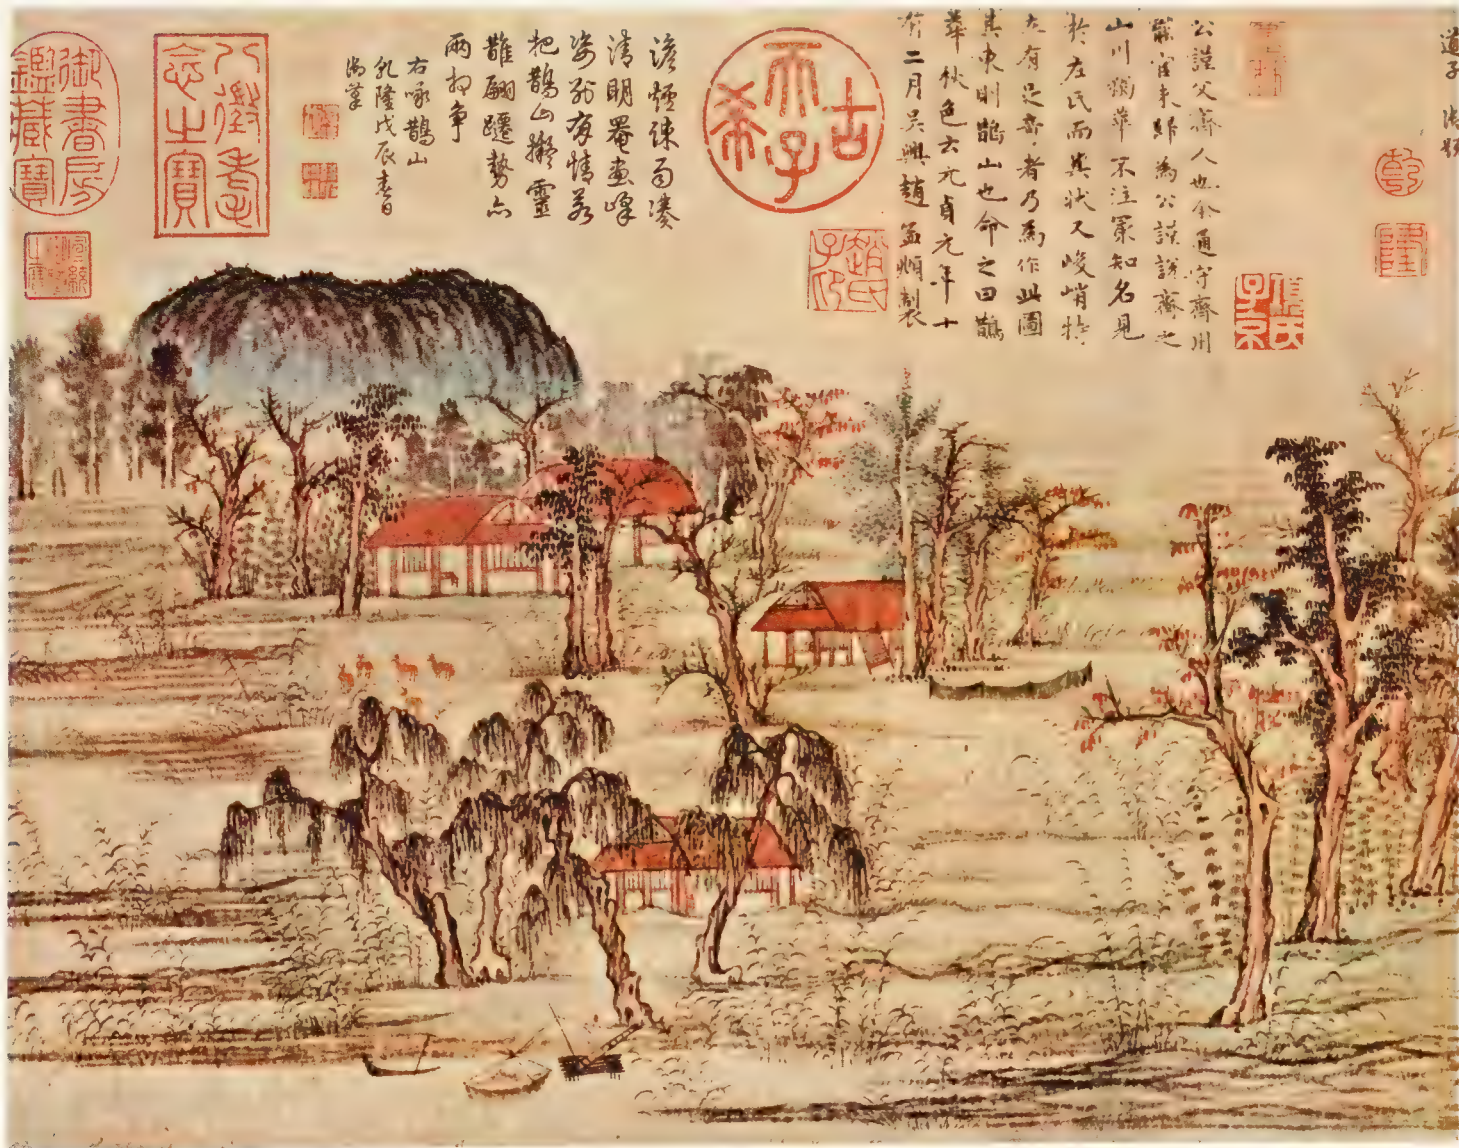 公謹父齊人也余通守齊州
罷官来歸為公謹說齊之
山川獨華不注最知名見
於左氏而其状又峻峭特
立有足奇者乃為作此圖
其東則鵲山也命之曰鵲
華秋色云元貞元年十
有二月吳興趙孟頫製
乾
隆
項氏子京
趙氏子印
古希天子
澹烟疎雨湊
清明罨畫峰
姿別有情若
把鵲山擬靈
䧿翩躚勢亦
兩相争
右咏鵲山
乾隆戊辰春日
御筆
八徵耄念之寶
御書房鑑藏寶